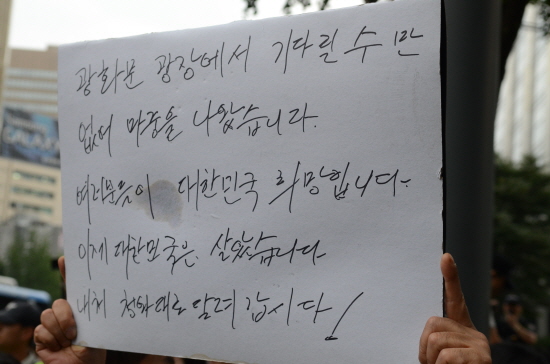 광화문 광장에서 기다릴 수 만
없어 마중을 나왔습니다.
여러분들이 대한민국 희망입니다.
이제 대한민국은, 살았습니다
내처 청와대로 달려 갑시다!